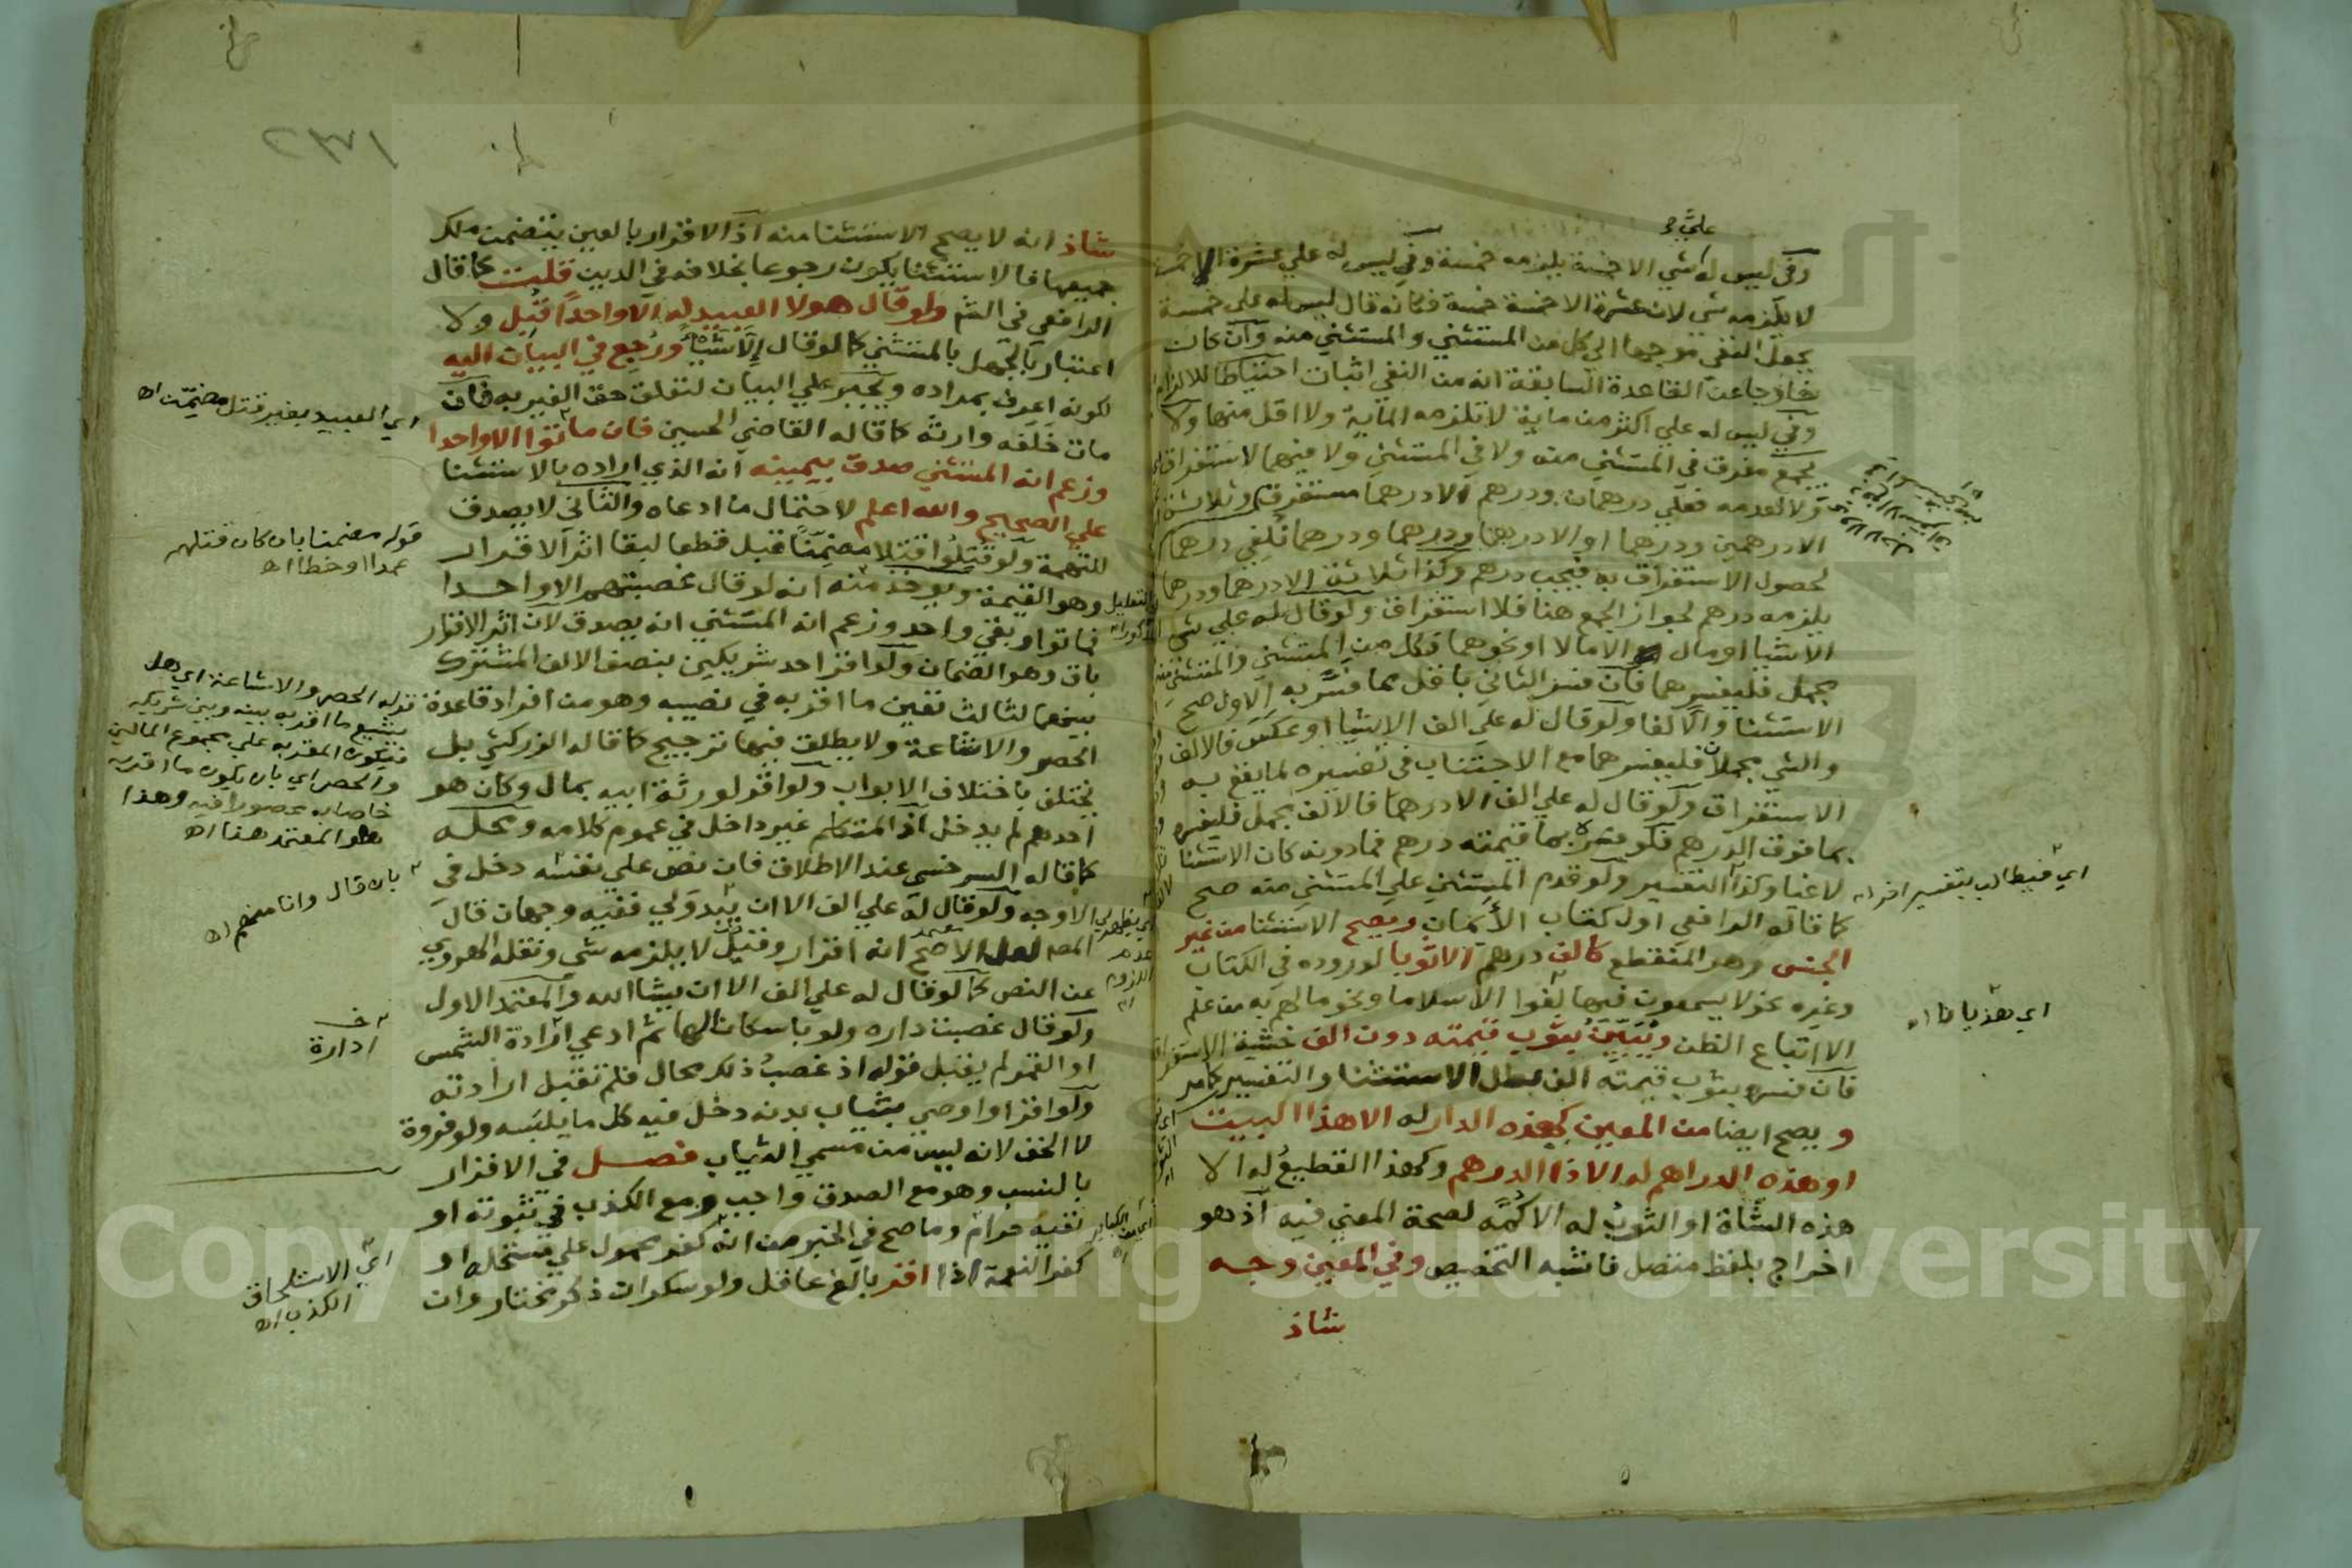 علي و
وفي ليس له شي الا خمسة يلزمه خمسة وفي ليس له علي عشرة الا خمسة
لا يلزمه شي لان عشرة الا خمسة خمسة فكانه قال ليس له علي خمسة
بجعل النفي موجها الي كل من المستثني والمستثني منه وان كان
خارجا عن القاعدة السابقة انه من النفي اثبات احتياطا للالزام
وفي ليس له علي اكثر من ماية لا تلزمه الماية ولا اقل منها ولا
يجمع مفرق في المستثني منه ولا في المستثني ولا فيهما لاستغراق
ولا لعدمه فعلي درهمان ودرهم الا درهما مستغرق وثلاثة
الا درهمين ودرهما او الا درهما ودرهما ودرهما تلغي درهما
لحصول الاستغراق به فيجب درهم وكذا ثلاثة الا درهما ودرهما
يلزمه درهم لجواز الجمع هنا فلا استغراق ولو قال له علي شي
الا شيا او مال الا مالا او نحوهما فكل من المستثني والمستثني منه
مجمل فليفسرهما فان فسر الثاني باقل مما فسر به الاول صح
الاستثنا والا لغا ولو قال له علي الف الا شيا او عكس فالالف
والشي مجملان فليفسرهما مع الاجتناب في تفسيره لما يقع به
الاستغراق ولو قال له علي الف الا درهما فالالف مجمل فليفسره
بما فوق الدرهم فلو فسره بما قيمته درهم فما دونه كان الاستثنا
لاغيا وكذا التفسير ولو قدم المستثني علي المستثني منه صح
كما قاله الرافعي اول كتاب الأيمان ويصح الاستثنا من غير
الجنس وهو المنقطع كالف درهم الا ثوبا لوروده في الكتاب
وغيره نحو لا يسمعون فيها لغوا الا سلاما ونحو ما لهم به من علم
الا اتباع الظن ويبين بثوب قيمته دون الف خشية الاستغراق
فان فسره بثوب قيمته الف بطل الاستثنا والتفسير كما مر
ويصح ايضا من المعين كهذه الدار له الا هذا البيت
او هذه الدراهم له الا ذا الدرهم وكهذا القطيع له الا
هذه الشاة او الثوب له الا كمه لصحة المعني فيه اذ هو
اخراج بلفظ متصل فاشبه التخصيص وفي المعين وجه
شاذ
اي فيطالب بتفسير اخر اه
اي بهذيانا اه
شاذ انه لا يصح الاستثنا منه اذ الاقرار بالعين يتضمن ملك
جميعها فالاستثنا يكون رجوعا بخلافه في الدين قلت كما قال
الرافعي في الشرح ولو قال هولا العبيد له الا واحدا قُبِل ولا
اعتبار بالجهل بالمستثني كما لو قال الا شيا ورُجع في البيان اليه
لكونه اعرف بمراده ويجبر علي البيان لتعلق حق الغير به فان
مات خَلَفه وارثه كما قاله القاضي الحسين فان ماتوا الا واحدا
وزعم انه المستثني صدق بيمينه انه الذي اراده بالاستثنا
علي الصحيح والله اعلم لاحتمال ما ادعاه والثاني لا يصدق
للتهمة ولو قتلوا قتلا مضمنا قبل قطعا لبقا اثر الاقرار
وهو القيمة ويوخذ منه انه لو قال غصبتهم الا واحدا
فماتوا وبقي واحد وزعم انه المستثني انه يصدق لان اثر الاقرار
باق وهو الضمان ولو اقر احد شريكين بنصف الالف المشترك
بينهما لثالث تعين ما اقر به في نصيبه وهو من افراد قاعدة
الحصر والاشاعة ولا يطلق فيها ترجيح كما قاله الزركشي بل
يختلف باختلاف الابواب ولو اقر لورثة ابيه بمال وكان هو
احدهم لم يدخل اذ المتكلم غير داخل في عموم كلامه ومحله
كما قاله السرخسي عند الاطلاق فان نص علي نفسه دخل في
الاوجه ولو قال له علي الف الا ان يبدو لي ففيه وجهان قال
المصـ لعل الاصح انه اقرار وقيل لا يلزمه شي ونقله الهروي
عن النص كما لو قال له علي الف الا ان يشا الله والمعتمد الاول
ولو قال غصبت داره ولو باسكان الها ثم ادعي ارادة الشمس
او القمر لم يقبل قوله اذ غصبُ ذلك محال فلم تقبل ارادته
ولو اقر او اوصي بثياب بدنه دخل فيه كل ما يلبسه ولو فروة
لا الخف لانه ليس من مسمي الثياب فصل في الاقرار
بالنسب وهو مع الصدق واجب ومع الكذب في ثبوته او
نفيه حرام وما صح في الخبر من انه كفر محمول علي مستحله او
كفر النعمة اذا اقر بالغ عاقل ولو سكران ذكر مختار وان
اي العبيد بغير قتل مضمن اه
قوله مضمنا بان كان قتلهم
عمدا او خطا اه
قوله الحصر والاشاعة اي هل
يشيع ما اقر به بينه وبين شريكه
فيكون المقر به علي مجموع المالين
والحصر اي بان يكون ما اقر به
خاصا به محصورا فيه وهذا
هو المعتمد هنا اه
بان قال وانا منهم اه
ادارة
اي الاستلحاق
الكذب اه